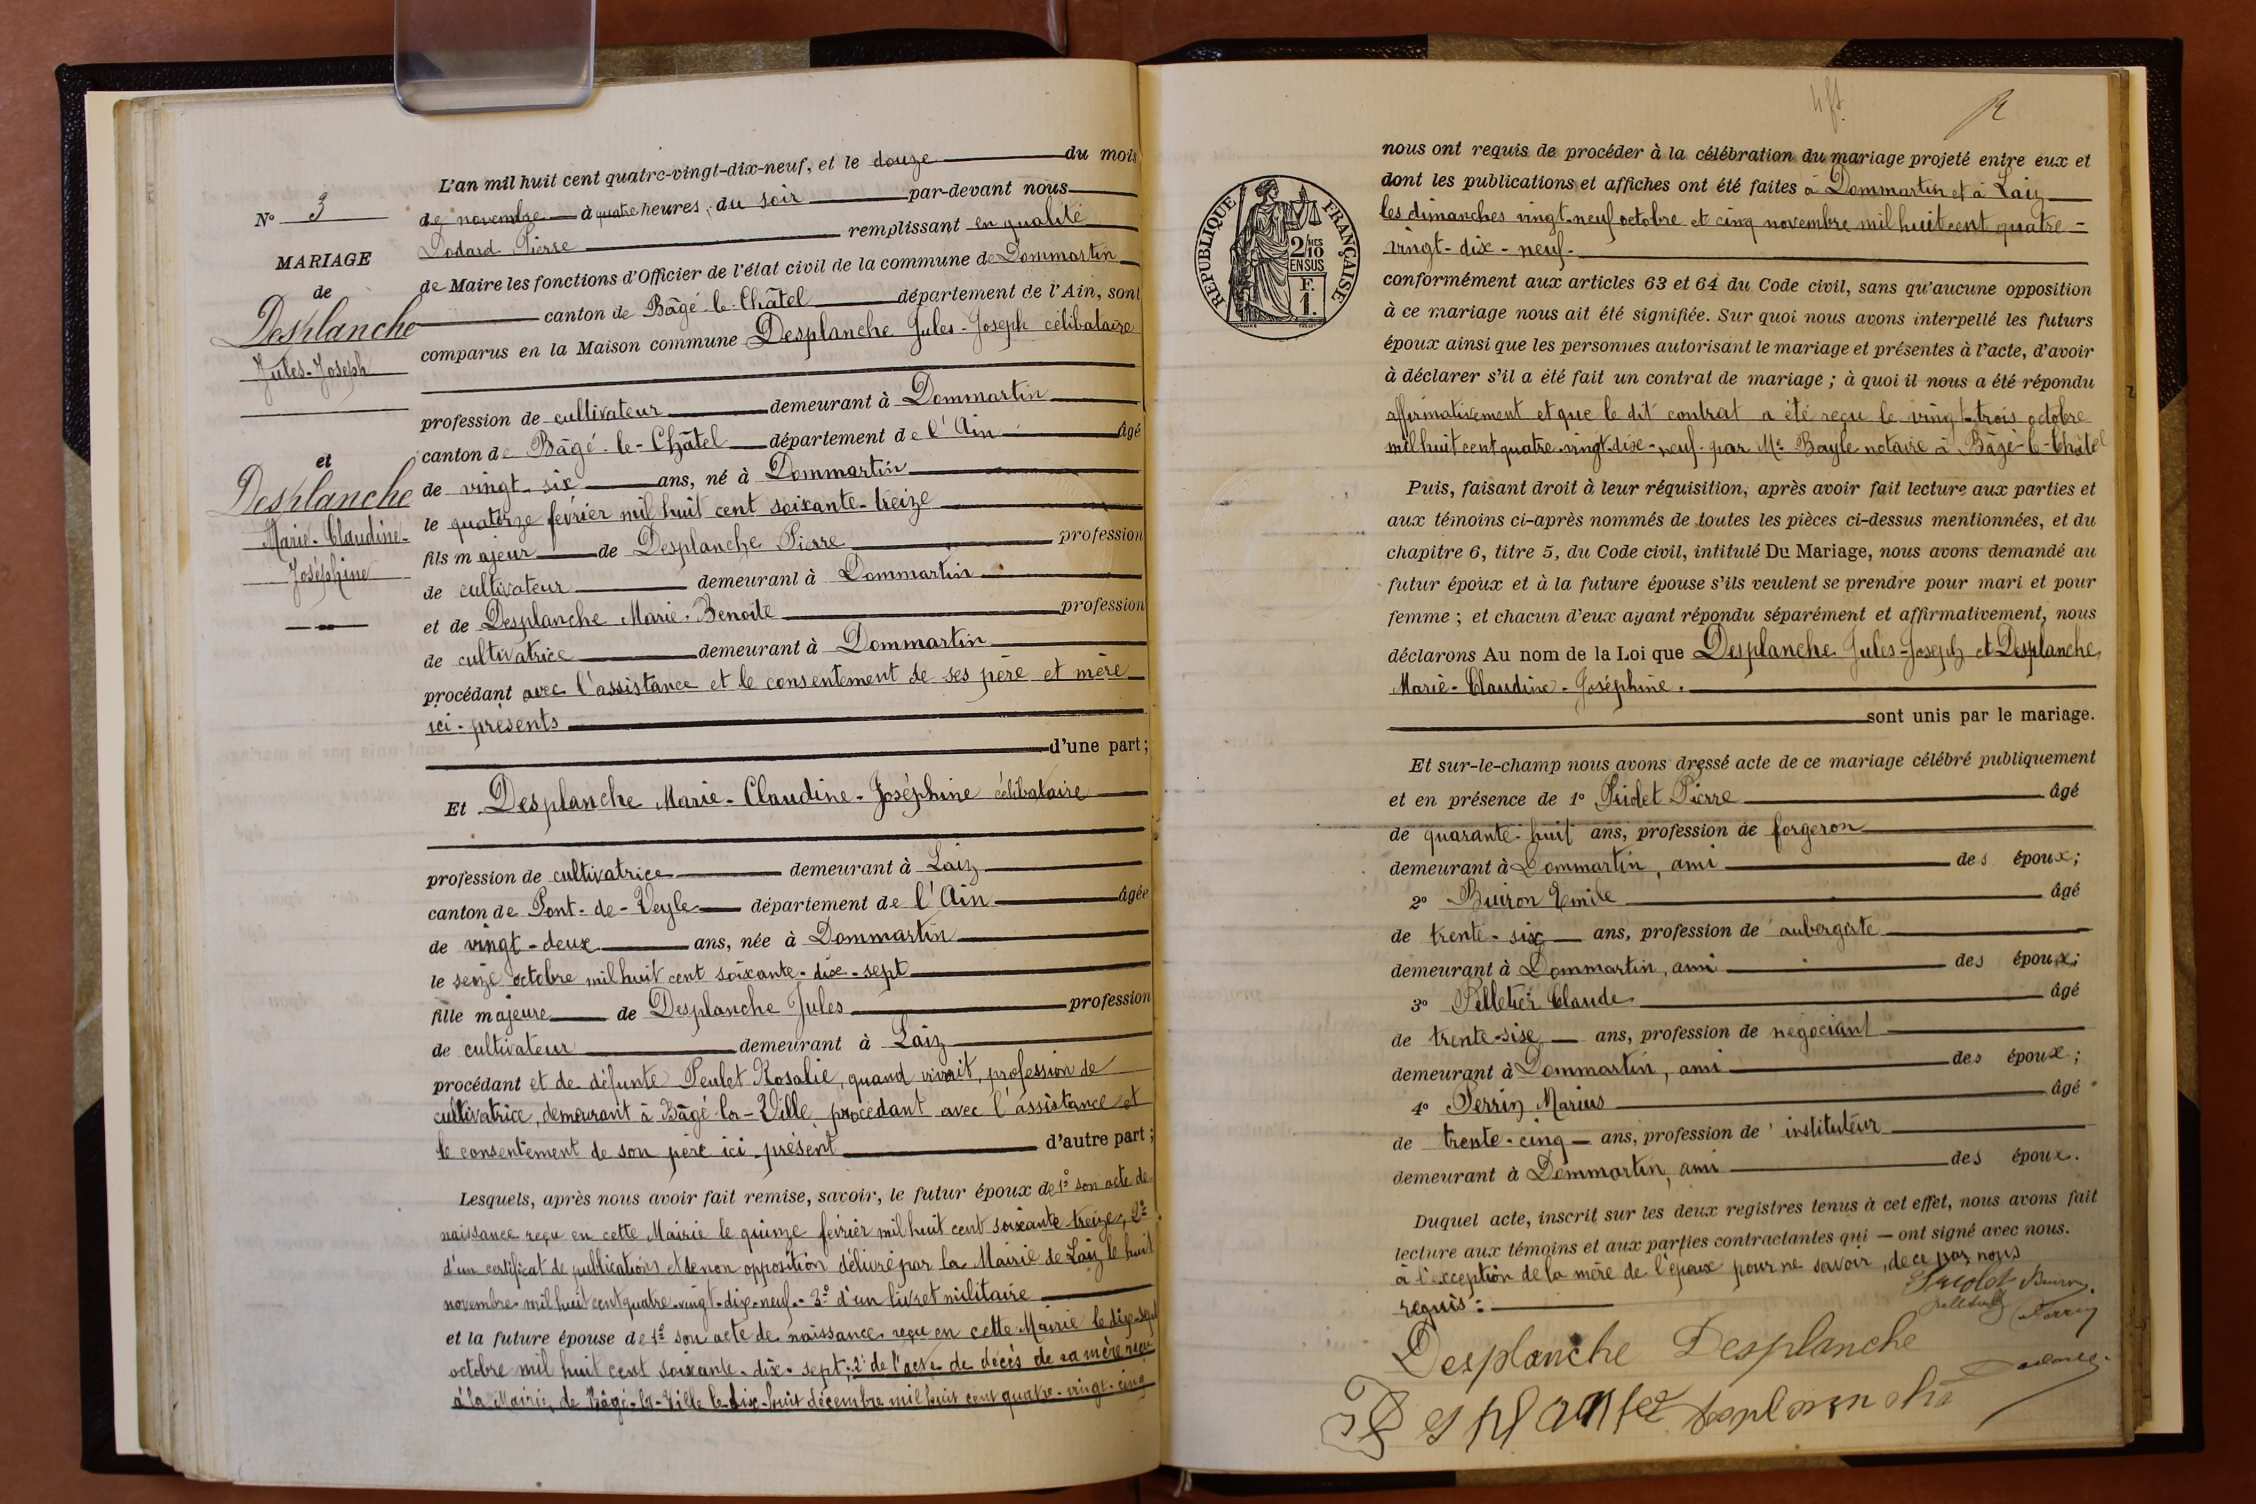 N° 3
MARIAGE
de
Desplanche
Jules-Joseph
et
Desplanche
Marie-Claudine-
Joséphine
L'an mil huit cent quatre-vingt-dix-neuf, et le douze du mois
de novembre à quatre heures, du soir par-devant nous
Dodard Pierre remplissant en qualité
de Maire les fonctions d'Officier de l'état civil de la commune de Dommartin
canton de Bâgé-le-Châtel département de l'Ain, sont
comparus en la Maison commune Desplanche Jules-Joseph célibataire
profession de cultivateur demeurant à Dommartin
canton de Bâgé-le-Châtel département de l'Ain âgé
de vingt-six ans, né à Dommartin
le quatorze février mil huit cent soixante-treize
fils majeur de Desplanche Pierre profession
de cultivateur demeurant à Dommartin
et de Desplanche Marie-Benoite profession
de cultivatrice demeurant à Dommartin
procédant avec l'assistance et le consentement de ses père et mère
ici-présents
d'une part;
Et Desplanche Marie-Claudine-Joséphine célibataire
profession de cultivatrice demeurant à Laiz
canton de Pont-de-Veyle département de l'Ain âgée
de vingt-deux ans, née à Dommartin
le seize octobre mil huit cent soixante-dix-sept
fille majeure de Desplanche Jules profession
de cultivateur demeurant à Laiz
procédant et de défunte Peulet Rosalie, quand vivait, profession de
cultivatrice, demeurant à Bâgé-la-Ville, procédant avec l'assistance et
le consentement de son père ici présent d'autre part;
Lesquels, après nous avoir fait remise, savoir, le futur époux de 1° son acte de
naissance reçu en cette Mairie le quinze février mil huit cent soixante-treize, 2°
d'un certificat de publications et de non opposition délivré par la Mairie de Laiz le huit
novembre mil huit cent quatre-vingt-dix-neuf.- 3° d'un livret militaire
et la future épouse de 1° son acte de naissance reçu en cette Mairie le dix-sept
octobre mil huit cent soixante-dix-sept; 2° de l'acte de décès de sa mère reçu
à la Mairie de Bâgé-la-Ville le dix-huit décembre mil huit cent quatre-vingt-cinq
RÉPUBLIQUE FRANÇAISE
2/10 MES
EN SUS
F.
1.
nous ont requis de procéder à la célébration du mariage projeté entre eux et
dont les publications et affiches ont été faites à Dommartin et à Laiz
les dimanches vingt-neuf octobre et cinq novembre mil huit cent quatre-
vingt-dix-neuf.
conformément aux articles 63 et 64 du Code civil, sans qu'aucune opposition
à ce mariage nous ait été signifiée. Sur quoi nous avons interpellé les futurs
époux ainsi que les personnes autorisant le mariage et présentes à l'acte, d'avoir
à déclarer s'il a été fait un contrat de mariage; à quoi il nous a été répondu
affirmativement et que le dit contrat a été reçu le vingt-trois octobre
mil huit cent quatre-vingt-dix-neuf par Me Bayle notaire à Bâgé-le-Châtel
Puis, faisant droit à leur réquisition, après avoir fait lecture aux parties et
aux témoins ci-après nommés de toutes les pièces ci-dessus mentionnées, et du
chapitre 6, titre 5, du Code civil, intitulé Du Mariage, nous avons demandé au
futur époux et à la future épouse s'ils veulent se prendre pour mari et pour
femme; et chacun d'eux ayant répondu séparément et affirmativement, nous
déclarons Au nom de la Loi que Desplanche Jules-Joseph et Desplanche
Marie-Claudine-Joséphine.
sont unis par le mariage.
Et sur-le-champ nous avons dressé acte de ce mariage célébré publiquement
et en présence de 1° Pierre âgé
de quarante-huit ans, profession de forgeron
demeurant à Dommartin, ami des époux;
2° Buiron Emile âgé
de trente-six ans, profession de aubergiste
demeurant à Dommartin, ami des époux;
3° Pelletier Claude âgé
de trente-six ans, profession de négociant
demeurant à Dommartin, ami des époux;
4° Perrin Marius âgé
de trente-cinq ans, profession de instituteur
demeurant à Dommartin, ami des époux.
Duquel acte, inscrit sur les deux registres tenus à cet effet, nous avons fait
lecture aux témoins et aux parties contractantes qui ont signé avec nous.
à l'exception de la mère de l'époux pour ne savoir, de ce par nous
requis:
Buiron
Pelletier Perrin
Desplanche Desplanche
Desplanche Desplanche